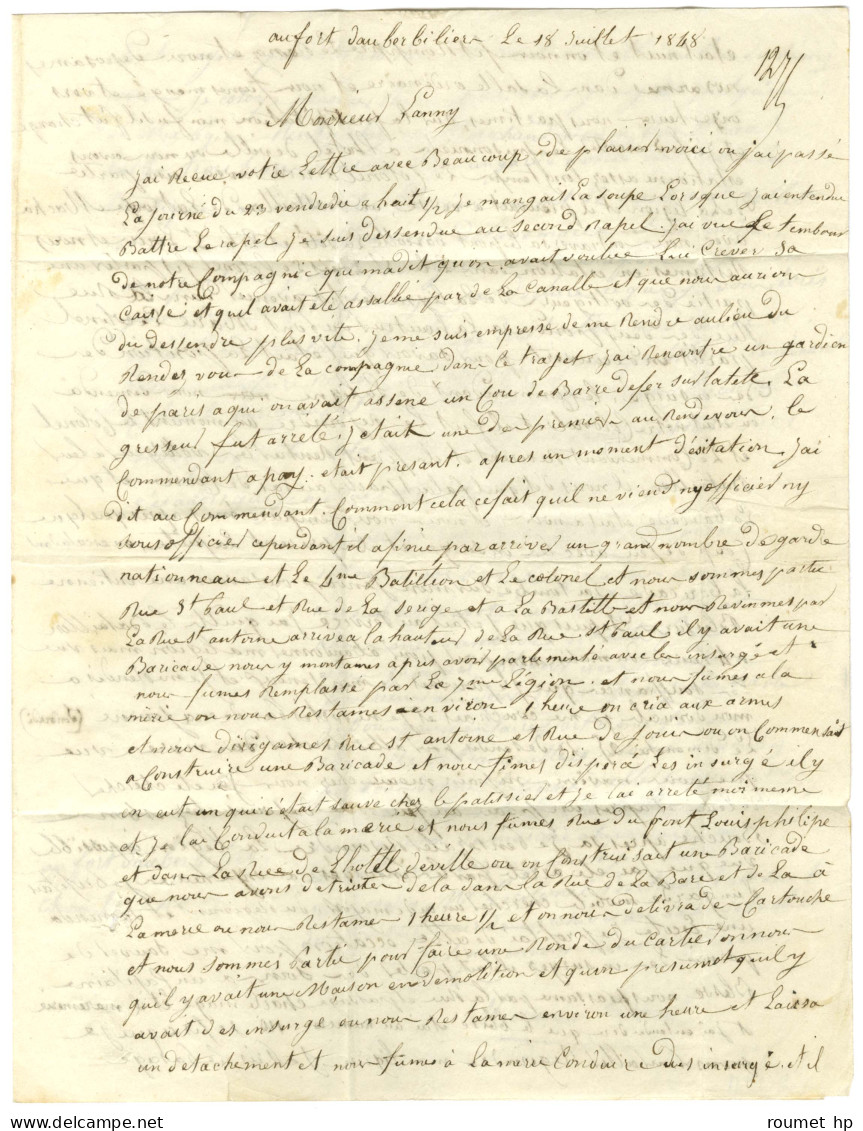 au fort dauberbiliers Le 18 Juillet 1848
127
Monsieur Lanny
Jai Recue votre Lettre avec Beaucoup de plaisir voici ou jai passé
La journé du 23 vendredie a huit 1/2 je mangais La soupe Lorsque Jai entendue
Battre Le rapel Je suis dessendue au second Rapel. Jai vue Le tembour
de notre Compagnie qui madit quon avait voulue Lui Crever sa
Caisse et quil avait été assallie par de La Canalle et que nous aurions
du dessendre plus vite. Je me suis empresse de me Rendre au lieu du
Rendez vous de La compagnie dans le trapet Jai Rencontre un gardien
de paris a qui on avait assene un Cou de Barre de fer sur la tete. La
gresseur fut arreté. Jetait une des premier au Rendevous. le
Commendant apay. etait presant. apres un moment d'esitation. Jai
dit au Commendant. Comment cela ce fait quil ne viend ny officier ny
sous officier cependant il a finie par arriver un grand nombre de garde
nationneau et Le 4me Batillion et Le colonel et nous sommes partie
Rue St Paul et Rue de La serige et a La Bastille et nous Revinmes par
La Rue st antoine arrive a la hauteur de La Rue. St Paul il y avait une
Baricade nous y montames apres avoir parlementé avec les insurgé et
nous fumes Remplassé par La 7me Légion. et nous fumes a la
merie ou nous Restames environ 1 heure on cria aux armes
et nous dirigames Rue St antoine et Rue de Jouis ou on Commensait
a Construire une Baricade et nous fimes dispercé Les insurgé il y
en eut un qui c'était sauvé chez le patissier et je lai arreté moi meme
et je lai Conduit a la merie et nous fumes Rue du pont Louis philipe
et dans La Rue de Lhotel de ville ou on Construisait une Baricade
que nous avons detruite de la dans la Rue de La Bare et de La à
La merie ou nous Restames 1 heure 1/2 et on nous delivra des Cartouche
et nous sommes Partie pour faire une Ronde du Cartier on nous
quil y avait une Maison en demolition et quon presumet quil y
avait des insurgé ou nous Restames environ une heure et Laissa
un detachement et nous fumes à La mérie Conduire des insurgé. et il
roumet hp